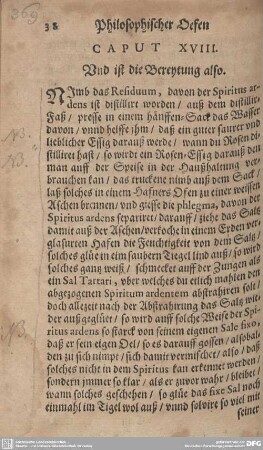 369
38 Philosophischer Oefen
CAPUT XVIII.
Vnd ist die Bereytung also.
NImb das Residuum, davon der Spiritus ar-
dens ist distilliret worden / auß dem distillir-
Faß / presse in einem hänffen-Sack das Wasser
davon / vnnd helffe ihm / daß ein guter saurer vnd
lieblicher Essig darauß werde / wann du Rosen di-
stilliret hast / so wirdt ein Rosen-Essig darauß den
man auff der Speise in der Haußhaltung ver-
brauchen kan / das truckene nimb auß dem Sack /
laß solches in einem Hafners Ofen zu einer weissen
Aschen brennen / vnd giesse die phlegma, davon der
Spiritus ardens separiret / darauff / ziehe das Saltz
damit auß der Aschen / verkoche in einem Erden ver-
glasurten Hafen die Feuchtigkeit von dem Saltz
solches glüe in eim saubern Tiegel lind auß / so wird
solches gantz weiß / schmecket auff der Zungen als
ein Sal Tartari, vber welches du etlich mahlen den
abgezogenen Spiritum ardentem abstrahiren solt /
doch allezeit nach der Abstrahirung das Saltz wie-
der außgeglüet / so wird auff solche Weise der Spi-
ritus ardens so starck von seinem eigenen Sale fixo,
daß er sein eigen Oel / so es darauff gossen / alsobal-
den zu sich nimpt / sich damit vermischet / also / daß
solches nicht in dem Spiritus kan erkennet werden /
sondern immer so klar / als er zuvor wahr / bleibet /
wann solches geschehen / so glüe das fixe Sal noch
einmahl im Tigel wol auß / vnnd solvire so viel mit
seiner
NB.
NB.